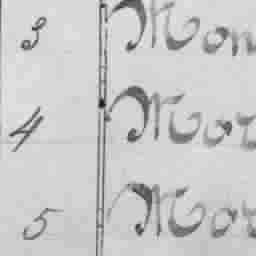 3 Mon
4 Mor
5 Mor